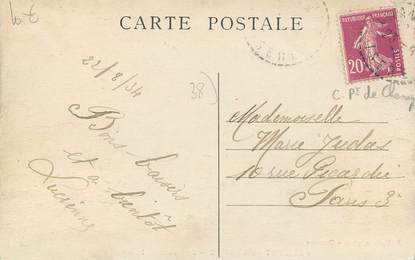 CARTE POSTALE
10 €
22/8/34
38)
Bons baisers
et a bientôt
Lucienne
RÉPUBLIQUE FRANÇAISE
20 c
POSTES
C. Pt de
Mademoiselle
Marie Judas
10 rue Picardie
Paris 3e